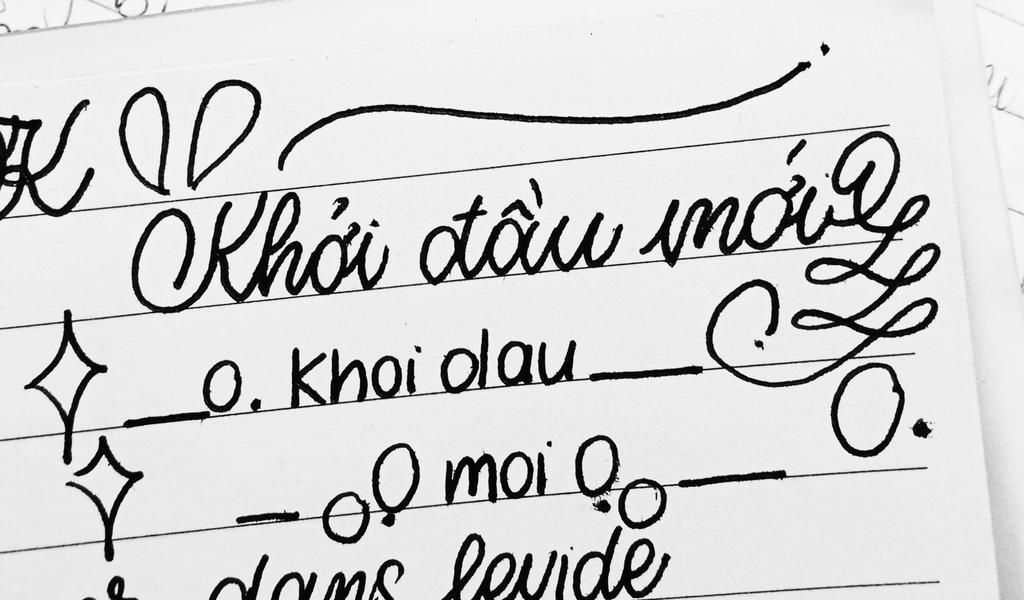 K
Khởi đầu mới
o. Khoi dau
moi
dans levide